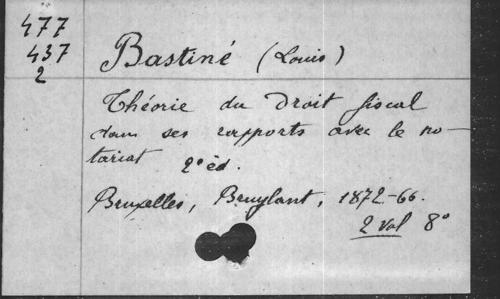 477
437
2
Bastiné (Louis)
Théorie du Droit fiscal
dans ses rapports avec le no-
tariat 2e éd.
Bruxelles, Bruylant, 1872-66.
2 vol 8°